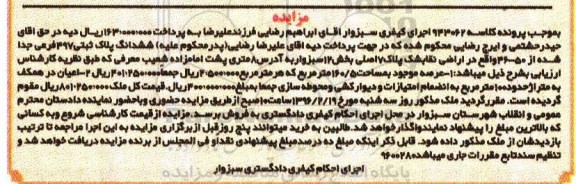 مزایده
بموجب پرونده کلاسه ۹۴۳۰۶۲ اجرای کیفری سبزوار آقای ابراهیم رضایی فرزند علیرضا به پرداخت ۱۶۳۰۰۰۰۰۰۰ ریال دیه در حق آقای
حیدر حشتمی و ایرج رضایی محکوم شده که در جهت پرداخت دیه آقای علیرضا رضایی (پدر محکوم علیه) ششدانگ پلاک ثبتی ۴۹۷ فرعی جدا
شده از ۵۰-۳۶ واقع در اراضی نقابشک پلاک ۷ اصلی بخش ۱۲ سبزوار به آدرس ۸ متری پشت امامزاده شعیب معرفی که طبق نظریه کارشناس
ارزیابی بشرح ذیل میباشد: ۱-عرصه موجود بمساحت ۱۶۰/۵ متر مربع که هر متر مربع ۲۵۰۰۰۰۰ ریال جمعاً ۴۰۱۲۵۰۰۰۰ ریال ۲-اعیان در همکف
به متراژ حدود ۱۰۰ متر مربع به انضمام امتیازات و دیوارکشی و محوطه سازی جمعا به مبلغ ۴۰۰۰۰۰۰۰۰ ریال. قیمت کل ملک ۸۰۱۲۵۰۰۰۰ ریال مقوم
گردیده است. مقرر گردید ملک مذکور روز سه شنبه مورخ ۱۳۹۶/۲/۱۹ ساعت ۱۰ صبح از طریق مزایده حضوری و با حضور نماینده دادستان محترم
عمومی و انقلاب شهرستان سبزوار در محل اجرای احکام کیفری دادگستری به فروش برسد. مزایده از قیمت کارشناسی شروع و به کسانی
که بالاترین مبلغ را پیشنهاد نمایند واگذار خواهد شد. طالبین به خرید میتوانند پنج روز قبل از برگزاری مزایده به این اجرا مراجعه تا ترتیب
بازدیدشان از ملک مذکور داده شود. قابل ذکر اینکه مبلغ ده درصد مبلغ پیشنهادی نقدا و فی المجلس از برنده مزایده دریافت خواهد شد و
تنظیم سند تابع مقررات جاری میباشد ۹۶۰۰۲۸۰
اجرای احکام کیفری دادگستری سبزوار